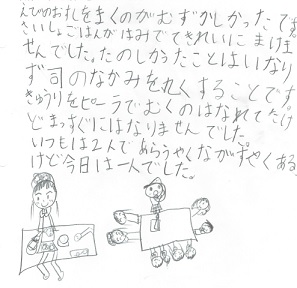 えびのおすしをまくのがむずかしかったです。
さいしょごはんがはみでてきれいにまけま
せんでした。たのしかったことはいなり
ず司のなかみをれくすることです。
きゅうりをピーラでむくのはなれてたけ
どまっすぐにはなりませんでした
いつもは2人であらうやくながすやくある
けど今日は一人でした。